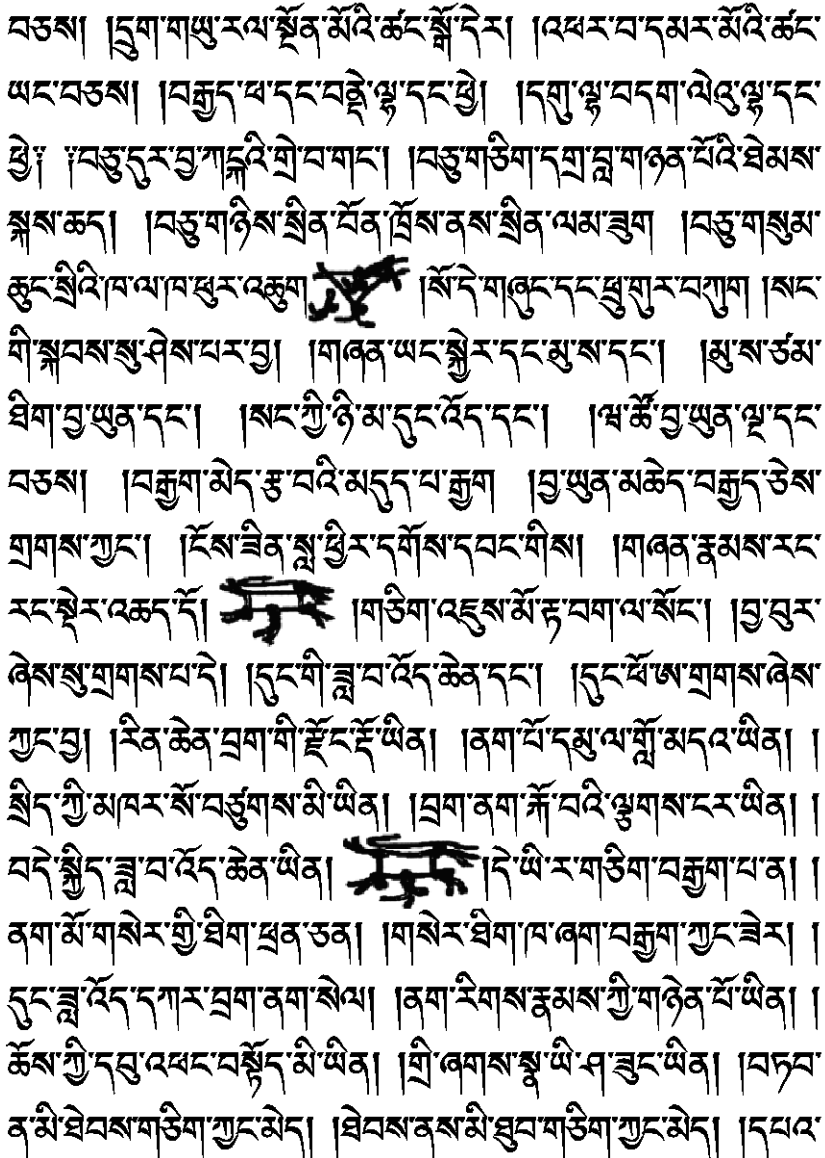 བཅས། །དྲུག་གཡུ་རལ་སྔོན་མོའི་ཚང་སྒོ་དེར། །འཕར་བ་དམར་མོའི་ཚང་
ཡང་བཅས། །བརྒྱད་ཕ་དང་བནྡེ་ལྷ་དང་ཕྱེ། །དགུ་ལྷ་བདག་ལེའུ་ལྷ་དང་
ཕྱེ༔ ༔བཅུ་དུར་བྱ་ཀངྐའི་གྲེ་བ་གང་། །བཅུ་གཅིག་དགྲ་བླ་གཉན་པོའི་ཐེམས་
སྐས་ཆད། །བཅུ་གཉིས་སྲིན་པོན་ཁྲོས་ནས་སྲིན་ལམ་ཟུག །བཅུ་གསུམ་
ཆུང་སྲིའི་ཁ་ལ་ཁ་ཕུར་འཆུག །སོ་དེ་གཞུང་དང་ཕྲུ་གུར་བཀུག །སང་
གི་སྐབས་སུ་ཤེས་པར་བྱ། །གཞན་ཡང་སྐྱེར་དང་མུ་ས་དང་། །མུ་ས་ཙམ་
ཐིག་བྱ་ཡུན་དང་། །སང་ཀྱི་ཉི་མ་དུང་འོད་དང་། །ཝ་ཚོ་བྱ་ཡུན་ལྔ་དང་
བཅས། །བརྒྱག་མེད་རྩ་བའི་མདུད་པ་རྒྱག །བྱ་ཡུན་མཆེད་བརྒྱད་ཅེས་
གྲགས་ཀྱང་། །ངོས་ཟིན་སླ་ཕྱིར་དགོས་དབང་གིས། །གཞན་རྣམས་རང་
རང་སྡེར་འཆད་དོ། །གཅིག་འཇུས་མོ་རྟ་བག་ལ་སོང་། །བྱ་བུར་
ཞེས་སུ་གྲགས་པ་དེ། །དུང་གི་ཟླ་བ་འོད་ཆེན་དང་། །དུང་ཕོ་ཨ་གྲགས་ཞེས་
ཀྱང་བྱ། །རིན་ཆེན་བྲག་གི་རྫོང་རྡོ་ཡིན། །ནག་པོ་དམུ་ལ་གློ་མདའ་ཡིན། །
སྲིད་ཀྱི་མཁར་སོ་བཙུགས་མི་ཡིན། །བྲག་ནག་རྐོ་བའི་ལྕགས་ངར་ཡིན། །
བདེ་སྐྱིད་ཟླ་བ་འོད་ཆེན་ཡིན། །དེ་ཡི་ར་གཅིག་བརྒྱག་པ་ན། །
ནག་མོ་གསེར་གྱི་ཐིག་ཕྲན་ཅན། །གསེར་ཐིག་ཁ་ཞག་བརྒྱག་ཀྱང་ཟེར། །
དུང་ཟླ་འོད་དཀར་བྲག་ནག་སེལ། །ནག་རིགས་རྣམས་ཀྱི་གཉེན་པོ་ཡིན། །
ཆོས་ཀྱི་དབུ་འཕང་བསྟོད་མི་ཡིན། །གྲི་ཞགས་སྣ་ཡི་ཤ་ཟུང་ཡིན། །བཏབ་
ན་མི་ཐེབས་གཅིག་ཀྱང་མེད། །ཐེབས་ནས་མི་ཐུབ་གཅིག་ཀྱང་མེད། །དཔའ་